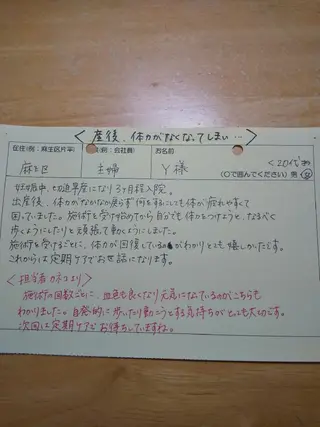 <産後、体力がなくなってしまい…>
在住(例:麻生区片平)
(例:会社員)
お名前
麻生区
主婦
Y様
<20代>
(○で囲んでください)男・女
妊娠中、切迫早産になり3ヶ月程入院。
出産後、体力がなかなか戻らず何をするにしても体が疲れやすくて
困っていました。施術を受け始めてから自分でも体力をつけようと、なるべく
歩くようにしたりと頑張って動くようにしました。
施術を受けるごとに、体力が回復しているのがわかりとても嬉しかったです。
これからは定期ケアでお世話になります。
<担当者カネコより>
施術の回数ごとに、血色も良くなり元気になっているのがこちらも
わかりました。自発的に歩いたり動こうとする気持ちがとっても大切です。
次回は定期ケアでお待ちしていますね。